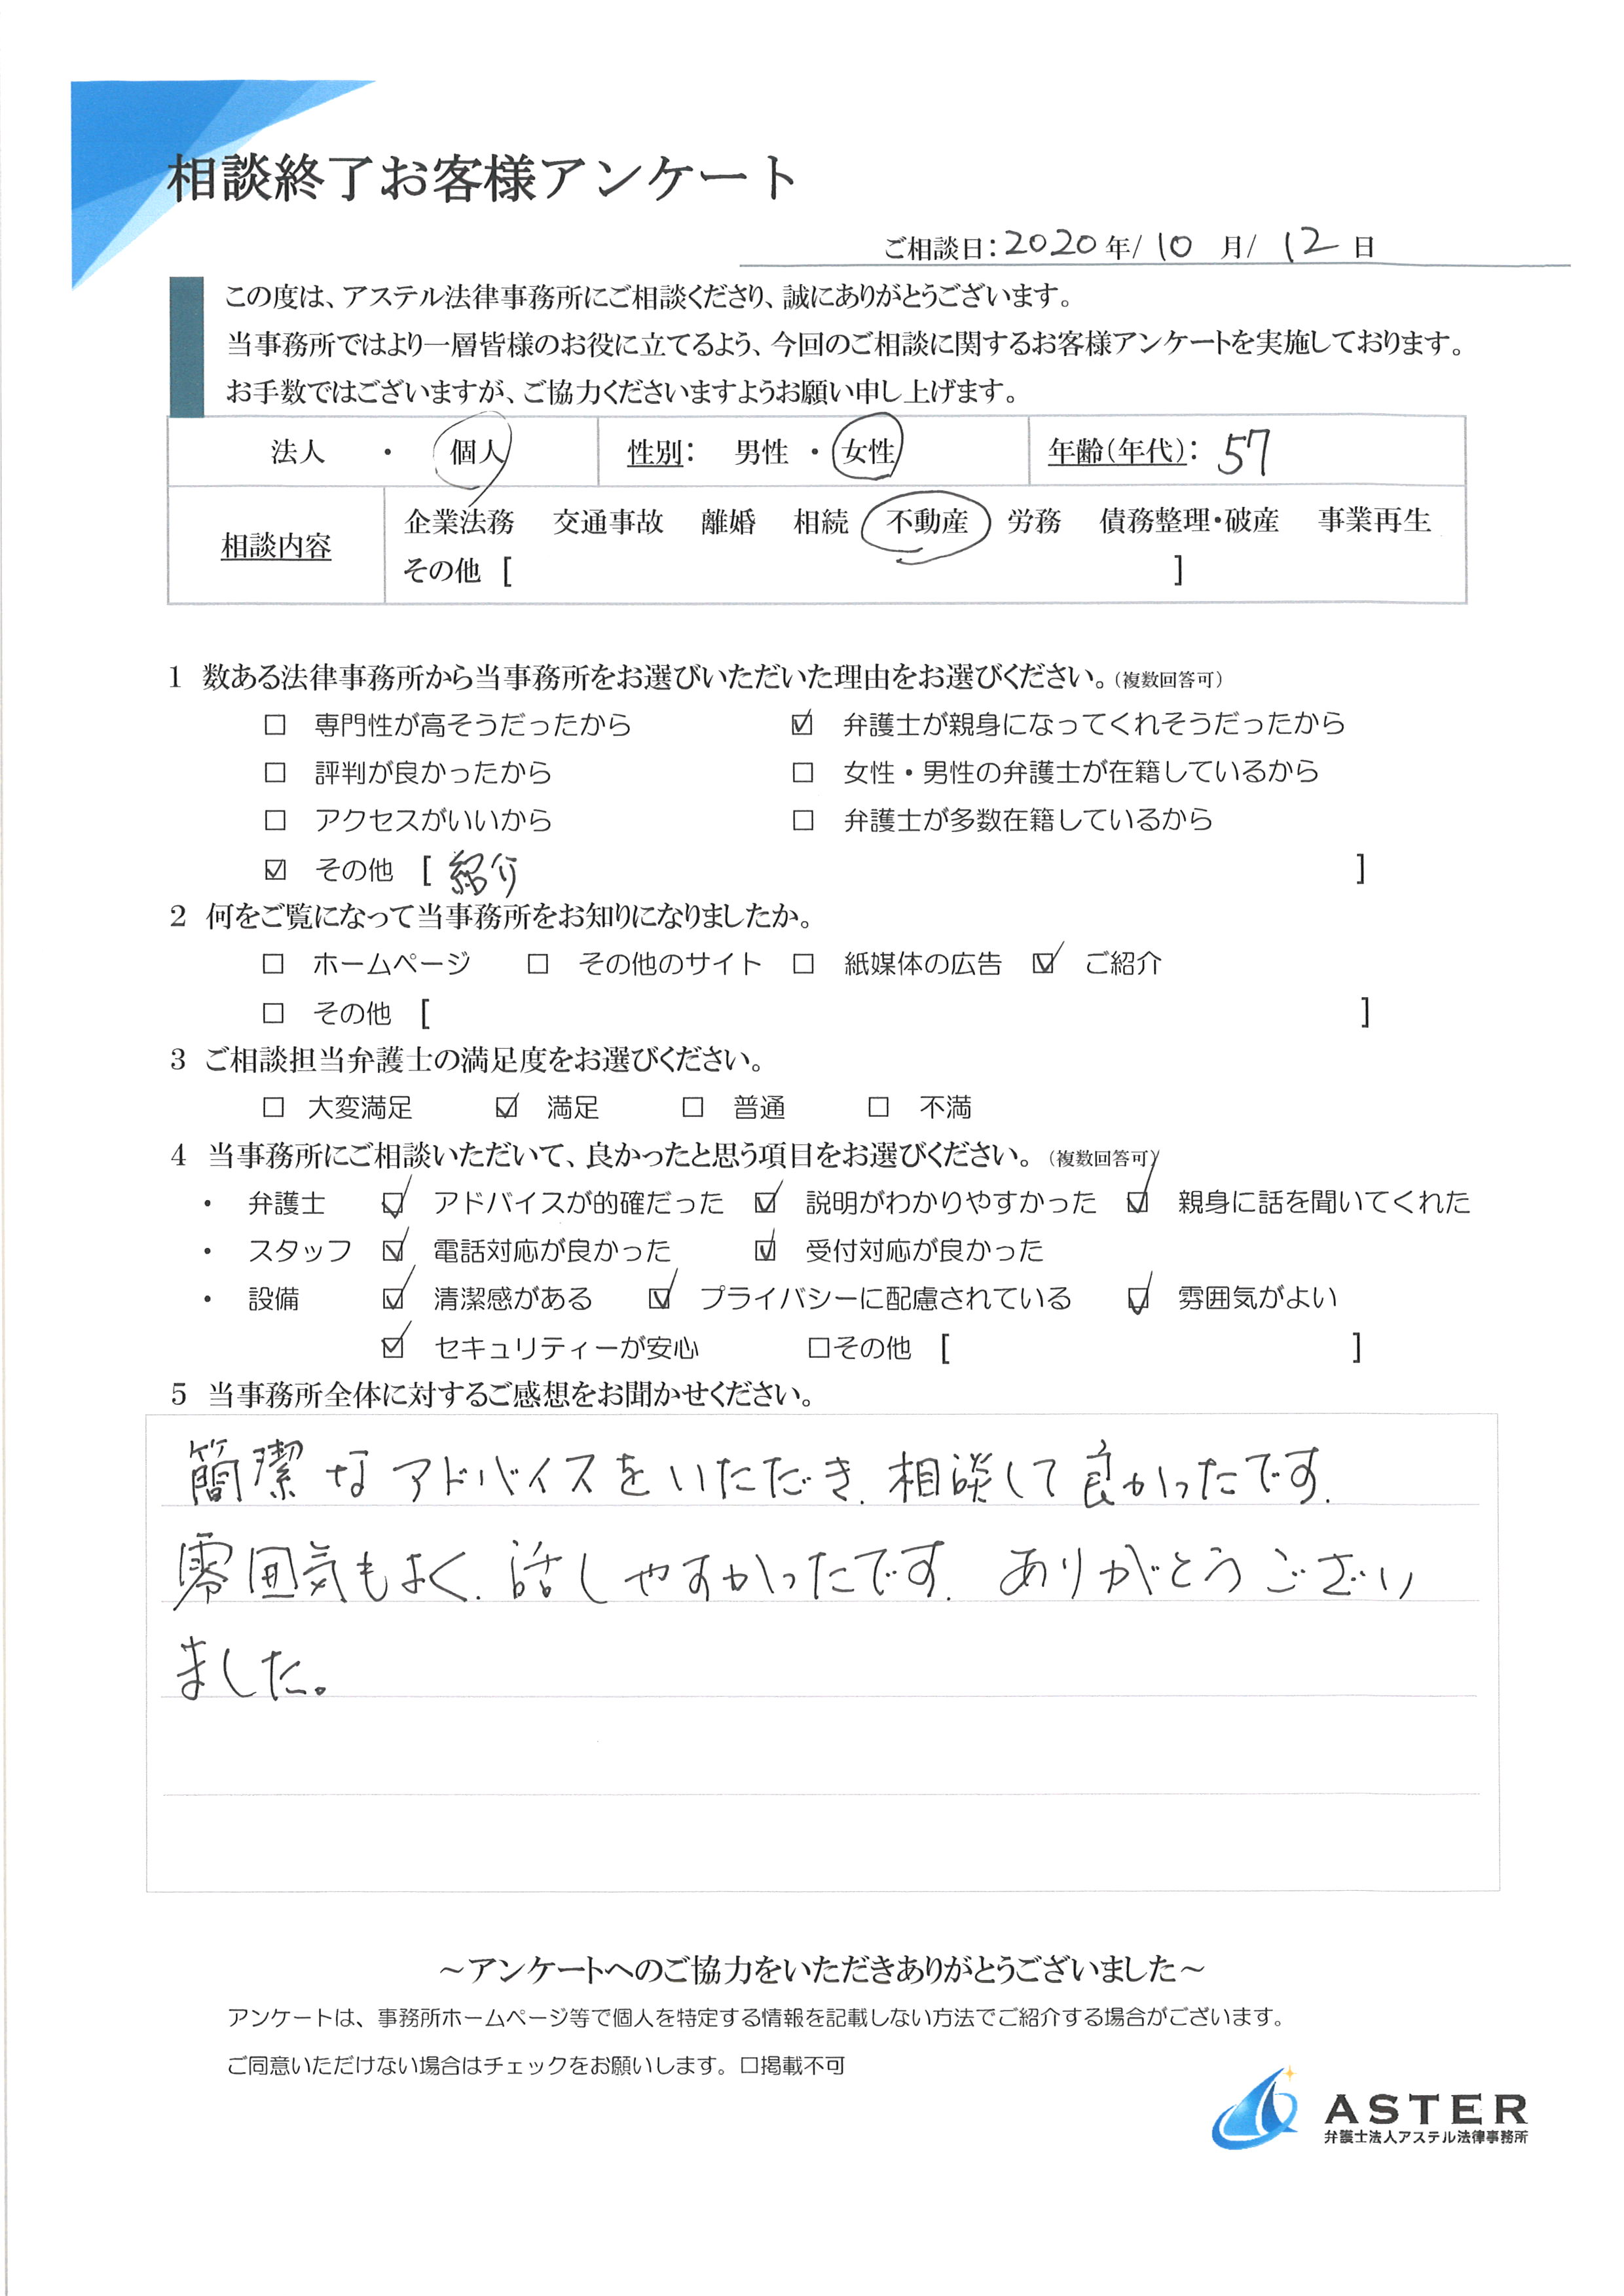 相談終了お客様アンケート
ご相談日：2020年/10月/12日
この度は、アステル法律事務所にご相談くださり、誠にありがとうございます。
当事務所ではより一層皆様のお役に立てるよう、今回のご相談に関するお客様アンケートを実施しております。
お手数ではございますが、ご協力くださいますようお願い申し上げます。
法人 ・ 個人 性別： 男性 ・ 女性 年齢（年代）： 57
相談内容 企業法務 交通事故 離婚 相続 不動産 労務 債務整理・破産 事業再生
その他 [ ]
1 数ある法律事務所から当事務所をお選びいただいた理由をお選びください。（複数回答可）
☐ 専門性が高そうだったから ☑ 弁護士が親身になってくれそうだったから
☐ 評判が良かったから ☐ 女性・男性の弁護士が在籍しているから
☐ アクセスがいいから ☐ 弁護士が多数在籍しているから
☑ その他 [ 紹介 ]
2 何をご覧になって当事務所をお知りになりましたか。
☐ ホームページ ☐ その他のサイト ☐ 紙媒体の広告 ☑ ご紹介
☐ その他 [ ]
3 ご相談担当弁護士の満足度をお選びください。
☐ 大変満足 ☑ 満足 ☐ 普通 ☐ 不満
4 当事務所にご相談いただいて、良かったと思う項目をお選びください。（複数回答可）
・ 弁護士 ☑ アドバイスが的確だった ☑ 説明がわかりやすかった ☑ 親身に話を聞いてくれた
・ スタッフ ☑ 電話対応が良かった ☑ 受付対応が良かった
・ 設備 ☑ 清潔感がある ☑ プライバシーに配慮されている ☑ 雰囲気がよい
☑ セキュリティーが安心 ☐その他 [ ]
5 当事務所全体に対するご感想をお聞かせください。
簡潔なアドバイスをいただき、相談して良かったです。
雰囲気もよく、話しやすかったです。ありがとうござい
ました。
～アンケートへのご協力をいただきありがとうございました～
アンケートは、事務所ホームページ等で個人を特定する情報を記載しない方法でご紹介する場合がございます。
ご同意いただけない場合はチェックをお願いします。☐掲載不可
ASTER
弁護士法人アステル法律事務所